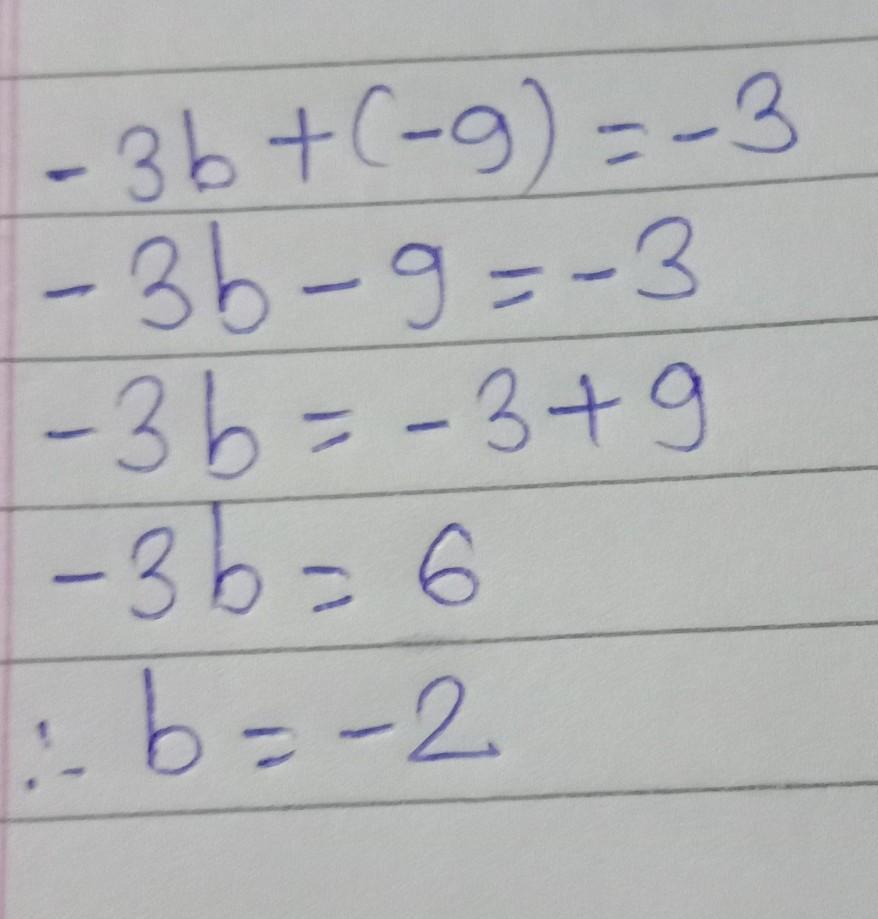 -3b+(-9)=-3
-3b-9=-3
-3b=-3+9
-3b=6
∴ b=-2